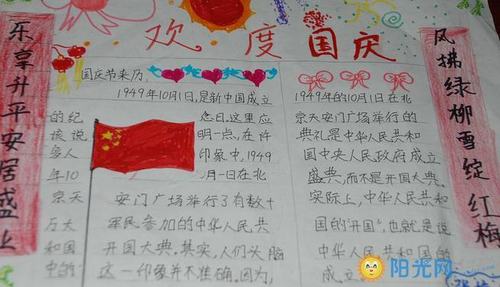 欢度国庆
乐享升平安居盛业
风拂绿柳雪绽红梅
国庆节来历、
1949年10月1日,是新中国成立
的纪念日,这里应
该说明一点,在许
多人印象中,1949
年10月一日在北
京天安门广场举行了有数十
万军民参加的中华人民共
和国开国大典。其实,人们头脑
中的这一印象并不准确。因为,
1949年的10月1日在北
京天安门广场举行的
典礼是中华人民共和
国中央人民政府成立
盛典,而不是开国大典。
实际上,中华人民共和
国的"开国",也就是说
中华人民共和国的
成立
阳光网